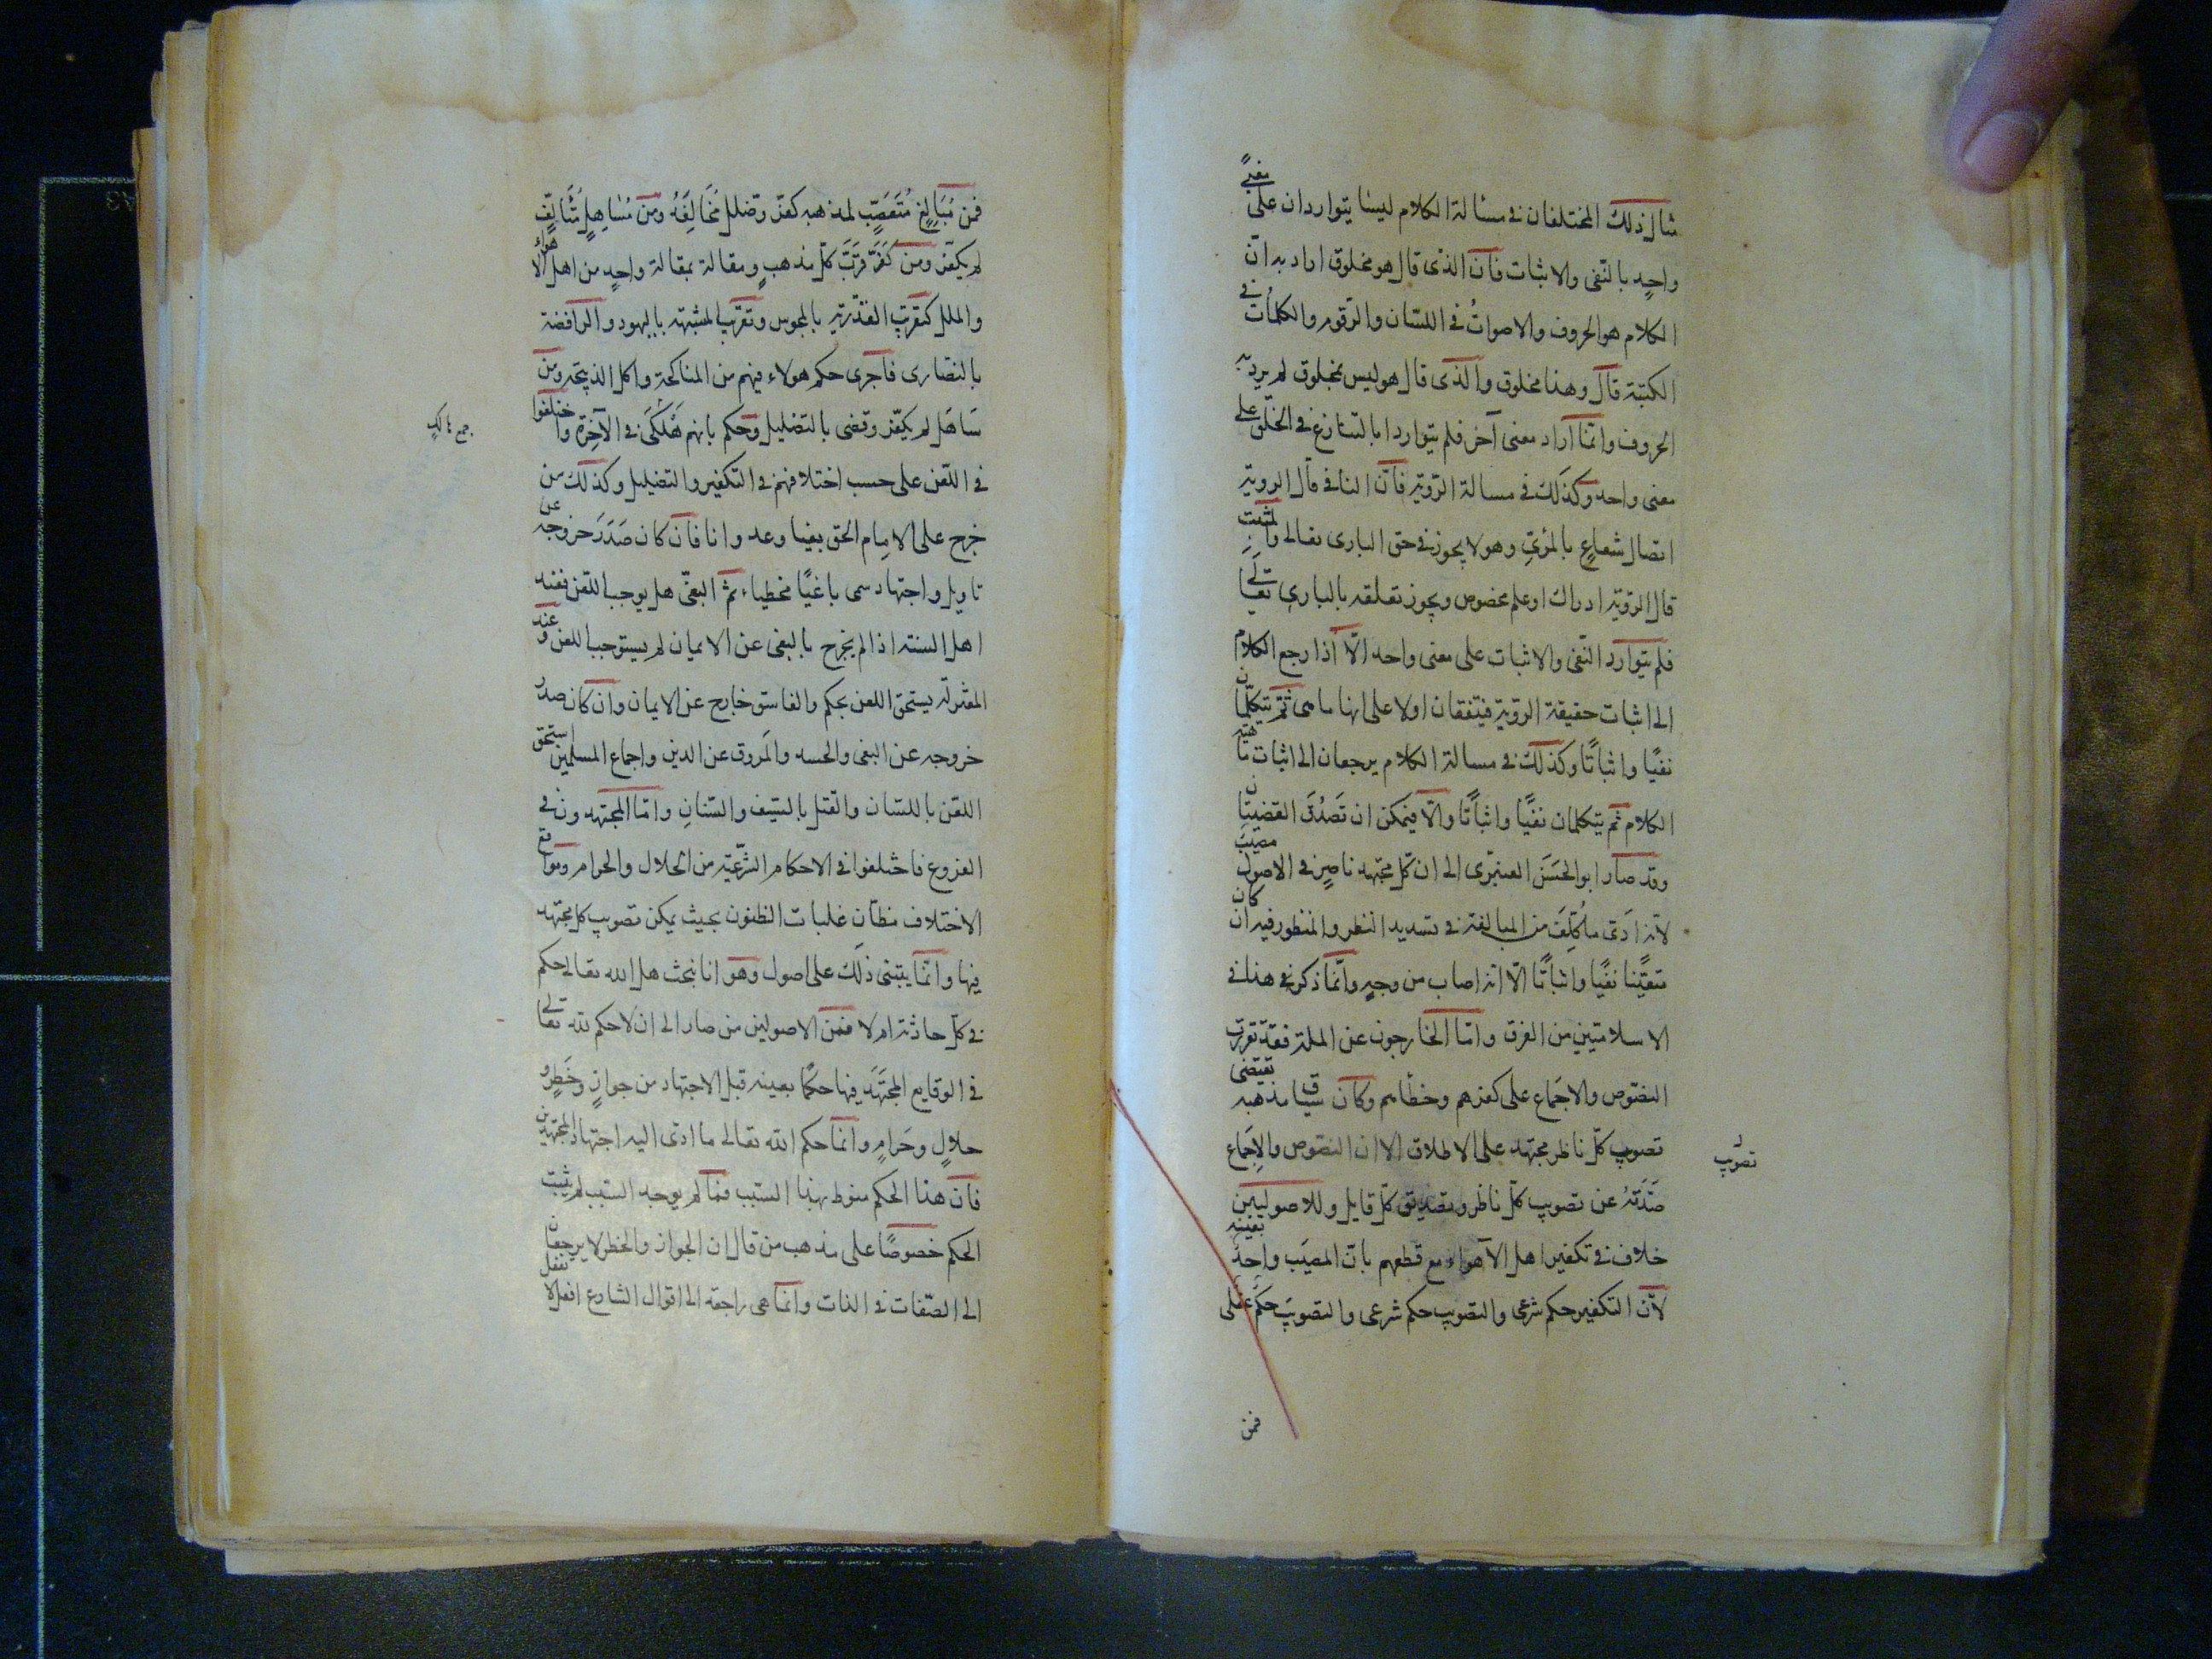 مثال ذلك المختلفان في مسألة الكلام ليسا يتواردان على معنىً
واحدٍ بالنفى والاثبات فان الذى قال هو مخلوق اراد به ان
الكلام هو الحروف والاصواتُ في اللسان والرقوم والكلماتُ في
الكتبة قال وهذا مخلوق والذى قال هو ليس بمخلوق لم يرد به
الحروف وانما اراد معنى آخر فلم يتواردا بالتنازع في الخلق على
معنى واحد وكذلك في مسالة الرؤية فانّ النافى قال الروية
اتصال شعاعٍ بالمرئيّ وهو لا يجوز في حق البارى تعالى والمثبت
قال الرؤية ادراك او علم مخصوص ويجوز تعلقه بالبارى تعالى
فلم يتوارد النفى والاثبات على معنى واحد الّا اذا رجع الكلام
الى اثبات حقيقة الروية فيتفقان اولا على انها ما هى ثم يتكلمان
نفيًا واثباتًا وكذلك في مسالة الكلام يرجعان الى اثبات ماهيّة
الكلام ثم يتكلمان نفيًا واثباتًا والّا فيمكن ان تَصدُقَ القضيتان
وقد صار ابو الحَسَن العنبرى الى ان كلّ مجتهد ناصرٍ في الاصول مصيبٌ
لانه ادّى ما كُلِّفَ من المبالغة في تسديد النظر والمنظور فيه ان كان
متعيّنا نفيًا واثباتًا الّا انه اصاب من وجهٍ وانّما ذكر في هذا في
الاسلاميّين من الفرق وامّا الخارجون عن الملة فقد تقررت
النصوص والاجماع على كفرهم وخطأهم وكان سياق مذهبه يقتضى
تصويب كلّ ناظر مجتهد على الاطلاق الا ان النصوص والاجماع
تصويب
صَدَّتهُ عن تصويب كلّ ناظر وتصديق كلّ قايل وللاصوليين
خلاف في تكفير اهل الاهواء مع قطعهم بانّ المصيب واحدٌ بعينه
لانّ التكفير حكم شرعى والتصويب حكم شرعى والتصويب حكم عقلى
فمن
فمن مُبَالِغٍ مُتَعَصِّبٍ لمذهبه كفّر وضلل مُخَالِفَهُ ومن مُساهِلٍ مُتَالِّفٍ
لم يكفّر ومن كَفَّرَ قَرَّبَ كلّ مذهبٍ ومقالة بمقالة واحدٍ من اهل الاهواء
والملل كتقريب القدرية بالمجوس وتقريب المشبهه باليهود والرافضة
بالنصارى فاجرى حكم هولاء فيهم من المناكحة واكل الذبيحة ومن
سَاهَل لم يكفّر وقضى بالتضليل وحكم بانهم هَلْكَى في الآخِرَة واختلفوا
جمع هالك
في اللّعن على حسب اختلافهم في التكفير والتضليل وكذلك من
خرج على الامام الحق بغيا وعدوانا فان كان صَدَرَ خروجه عن
تاويل واجتهاد سمى باغيًا مخطياء ثم البغى هل يوجب اللعن فعند
اهل السنة اذا لم يخرج بالبغى عن الايمان لم يستوجب اللعن وعند
المعتزلة يستحق اللعن بحكم والفاسق خارج عن الايمان وان كان صدر
خروجه عن البغى والحسد والمَروق عن الدين واجماع المسلمين استحق
اللعن باللسان والقتل بالسيف والسنانِ وامّا المجتهدون في
الفروع فاختلفوا في الاحكام الشرعيّة من الحلال والحرام ومواقع
الاختلاف مظانّ غلبات الظنون بحيث يمكن تصويب كل مجتهد
فيها وانّما يبتنى ذلك على اصول وهو انا نبحث هل لله تعالى حكم
في كلّ حادثة ام لا فمن الاصولين من صار الى ان لا حكم لله تعالى
في الوقايع المجتَهَد فيها حكمًا بعينه قبل الاجتهاد من جوازٍ وحَظرٍ و
حلالٍ وحَرامٍ وانّما حكم الله تعالى ما ادّى اليه اجتهاد المجتهدين
فان هذا الحكم منوط بهذا السبب فما لم يوجد السبب لم يثبت
الحكم خصوصًا على مذهب من قال ان الجواز والحظر لا يرجعان
الى الصّفات في الذات وانّما هى راجعة الى اقوال الشارع افعل لا تفعل